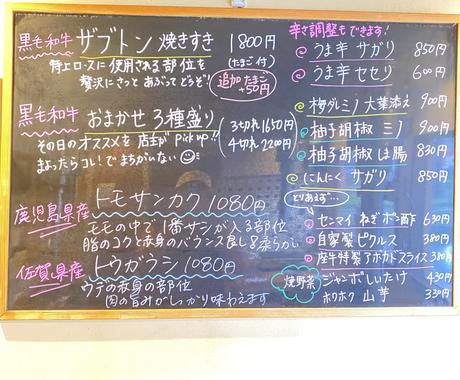 黒毛和牛 ザブトン 焼きすき 1800円
(たまご付)
特上ロースに使用される部位を
贅沢にさっと あぶってどうぞ!
追加たまご
+50円
黒毛和牛 おまかせ 3種盛り
3切れ 1650円
4切れ 2200円
その日のオススメを 店主が Pick up!!
まよったらコレ! で まちがいない
鹿児島県産 トモサンカク 1080円
モモの中で 1番サシが入る部位
脂のコクと赤身のバランス良し&柔らかい
佐賀県産 トウガラシ 1080円
ウデの赤身の部位
肉の旨みがしっかり味わえます
辛さ調整もできます!
うま辛 サガリ 850円
うま辛 セセリ 600円
梅ダレミノ 大葉添え 900円
柚子胡椒 ミノ 900円
柚子胡椒 ほほ腸 830円
にんにく サガリ 850円
とりあえず…
センマイ ねぎポン酢 630円
自家製 ピクルス 380円
座牛特製 アボカドスライス 380円
焼野菜
ジャンボしいたけ 430円
ホクホク 山芋 330円